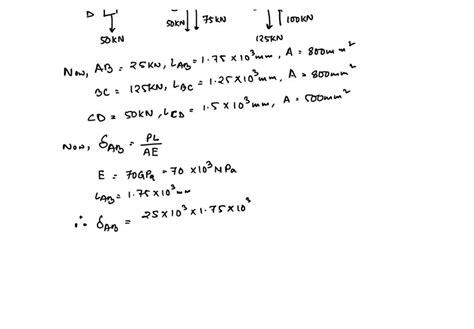 D
50KN 75KN 100KN
50KN 125KN
Now, AB = 25KN, LAB = 1.75 × 10³ mm, A = 800mm²
BC = 125KN, LBC = 1.25 × 10³ mm, A = 800mm²
CD = 50KN, LCD = 1.5 × 10³ mm, A = 500mm²
Now, δAB = PL
AE
E = 70GPa = 70 × 10³ MPa
LAB = 1.75 × 10³ mm
∴ δAB = 25 × 10³ × 1.75 × 10³